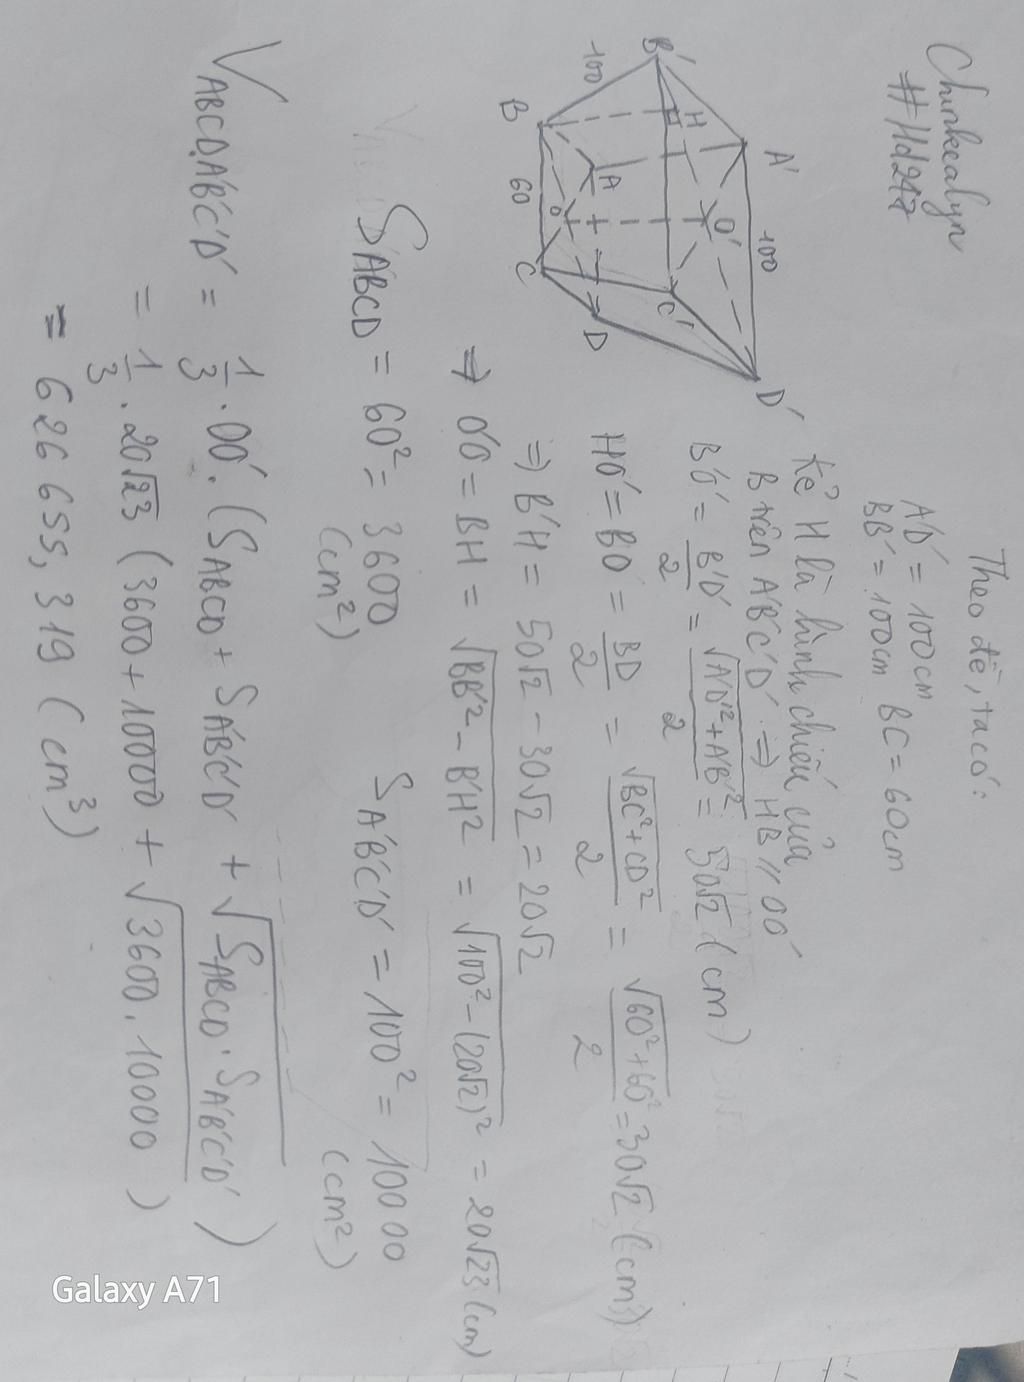 Chinkcalyn
#Hd247
Theo đề, ta có:
A'D' = 100cm
BB' = 100cm BC = 60cm
Kẻ H là hình chiếu của
B trên A'B'C'D' ⇒ HB // OO'
B'O' = B'D'/2 = √(A'D'² + A'B'²)/2 = 50√2 (cm)
HO' = BO = BD/2 = √(BC² + CD²)/2 = √(60² + 60²)/2 = 30√2 (cm)
⇒ B'H = 50√2 - 30√2 = 20√2
⇒ O'O = BH = √(BB'² - B'H²) = √(100² - (20√2)²) = 20√23 (cm)
S ABCD = 60² = 3600 (cm²)
S A'B'C'D' = 100² = 10000 (cm²)
V ABCD.A'B'C'D' = 1/3 . OO' . (S ABCD + S A'B'C'D' + √(S ABCD . S A'B'C'D'))
= 1/3 . 20√23 (3600 + 10000 + √(3600 . 10000))
= 626 655, 319 (cm³)
B'
A'
H
100
B
A
O'
100
60
O
C
C'
D
D'
Galaxy A71